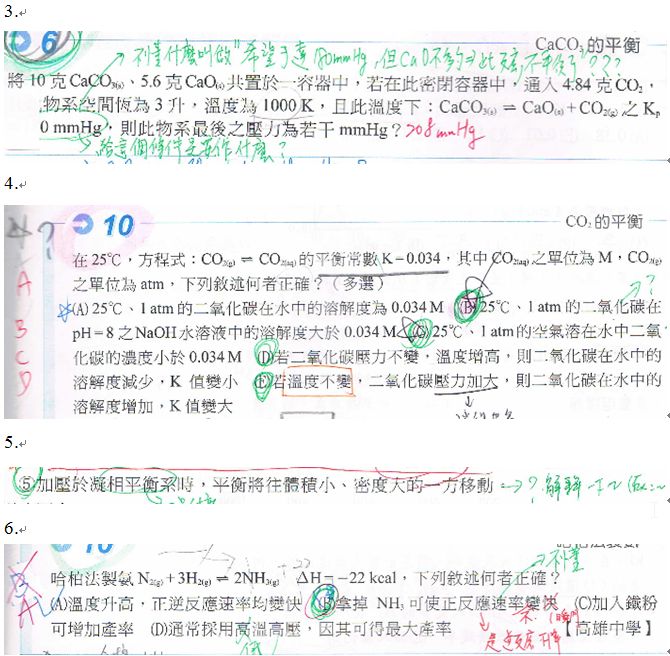 3.
6
CaCO₃的平衡
不懂什麼叫做"希望于達80mmHg,但CaO不夠
???
將 10 克 CaCO₃₍ₛ₎、5.6 克 CaO₍ₛ₎共置於一容器中,若在此密閉容器中,通入 4.84 克 CO₂,
物系空間恆為 3 升,溫度為 1000 K,且此溫度下:CaCO₃₍ₛ₎ ⇌ CaO₍ₛ₎+CO₂₍g₎ 之 Kₚ
0 mmHg,則此物系最後之壓力為若干 mmHg?208mmHg
給這個條件是要作什麼?
4.
?
10
CO₂的平衡
在 25℃,方程式:CO₂₍g₎ ⇌ CO₂₍aq₎ 的平衡常數 K=0.034,其中 CO₂₍aq₎ 之單位為 M,CO₂₍g₎
之單位為 atm,下列敘述何者正確?(多選)
?
(A) 25℃、1 atm 的二氧化碳在水中的溶解度為 0.034 M (B) 25℃、1 atm 的二氧化碳在
pH=8 之 NaOH 水溶液中的溶解度大於 0.034 M (C) 25℃、1 atm 的空氣溶在水中二氧
化碳的濃度小於 0.034 M (D)若二氧化碳壓力不變,溫度增高,則二氧化碳在水中的
溶解度減少,K 值變小 (E)若溫度不變,二氧化碳壓力加大,則二氧化碳在水中的
溶解度增加,K 值變大
A
B
C
D
5.
⑤加壓於凝相平衡系時,平衡將往體積小、密度大的一方移動 → ? 解釋一下~
6.
10
哈柏法製氨 N₂₍g₎+3H₂₍g₎ ⇌ 2NH₃₍g₎ ΔH=-22 kcal,下列敘述何者正確?
不懂
(A)溫度升高,正逆反應速率均變快 (B)拿掉 NH₃ 可使正反應速率變快 (C)加入鐵粉
可增加產率 (D)通常採用高溫高壓,因其可得最大產率 【高雄中學】
A
低